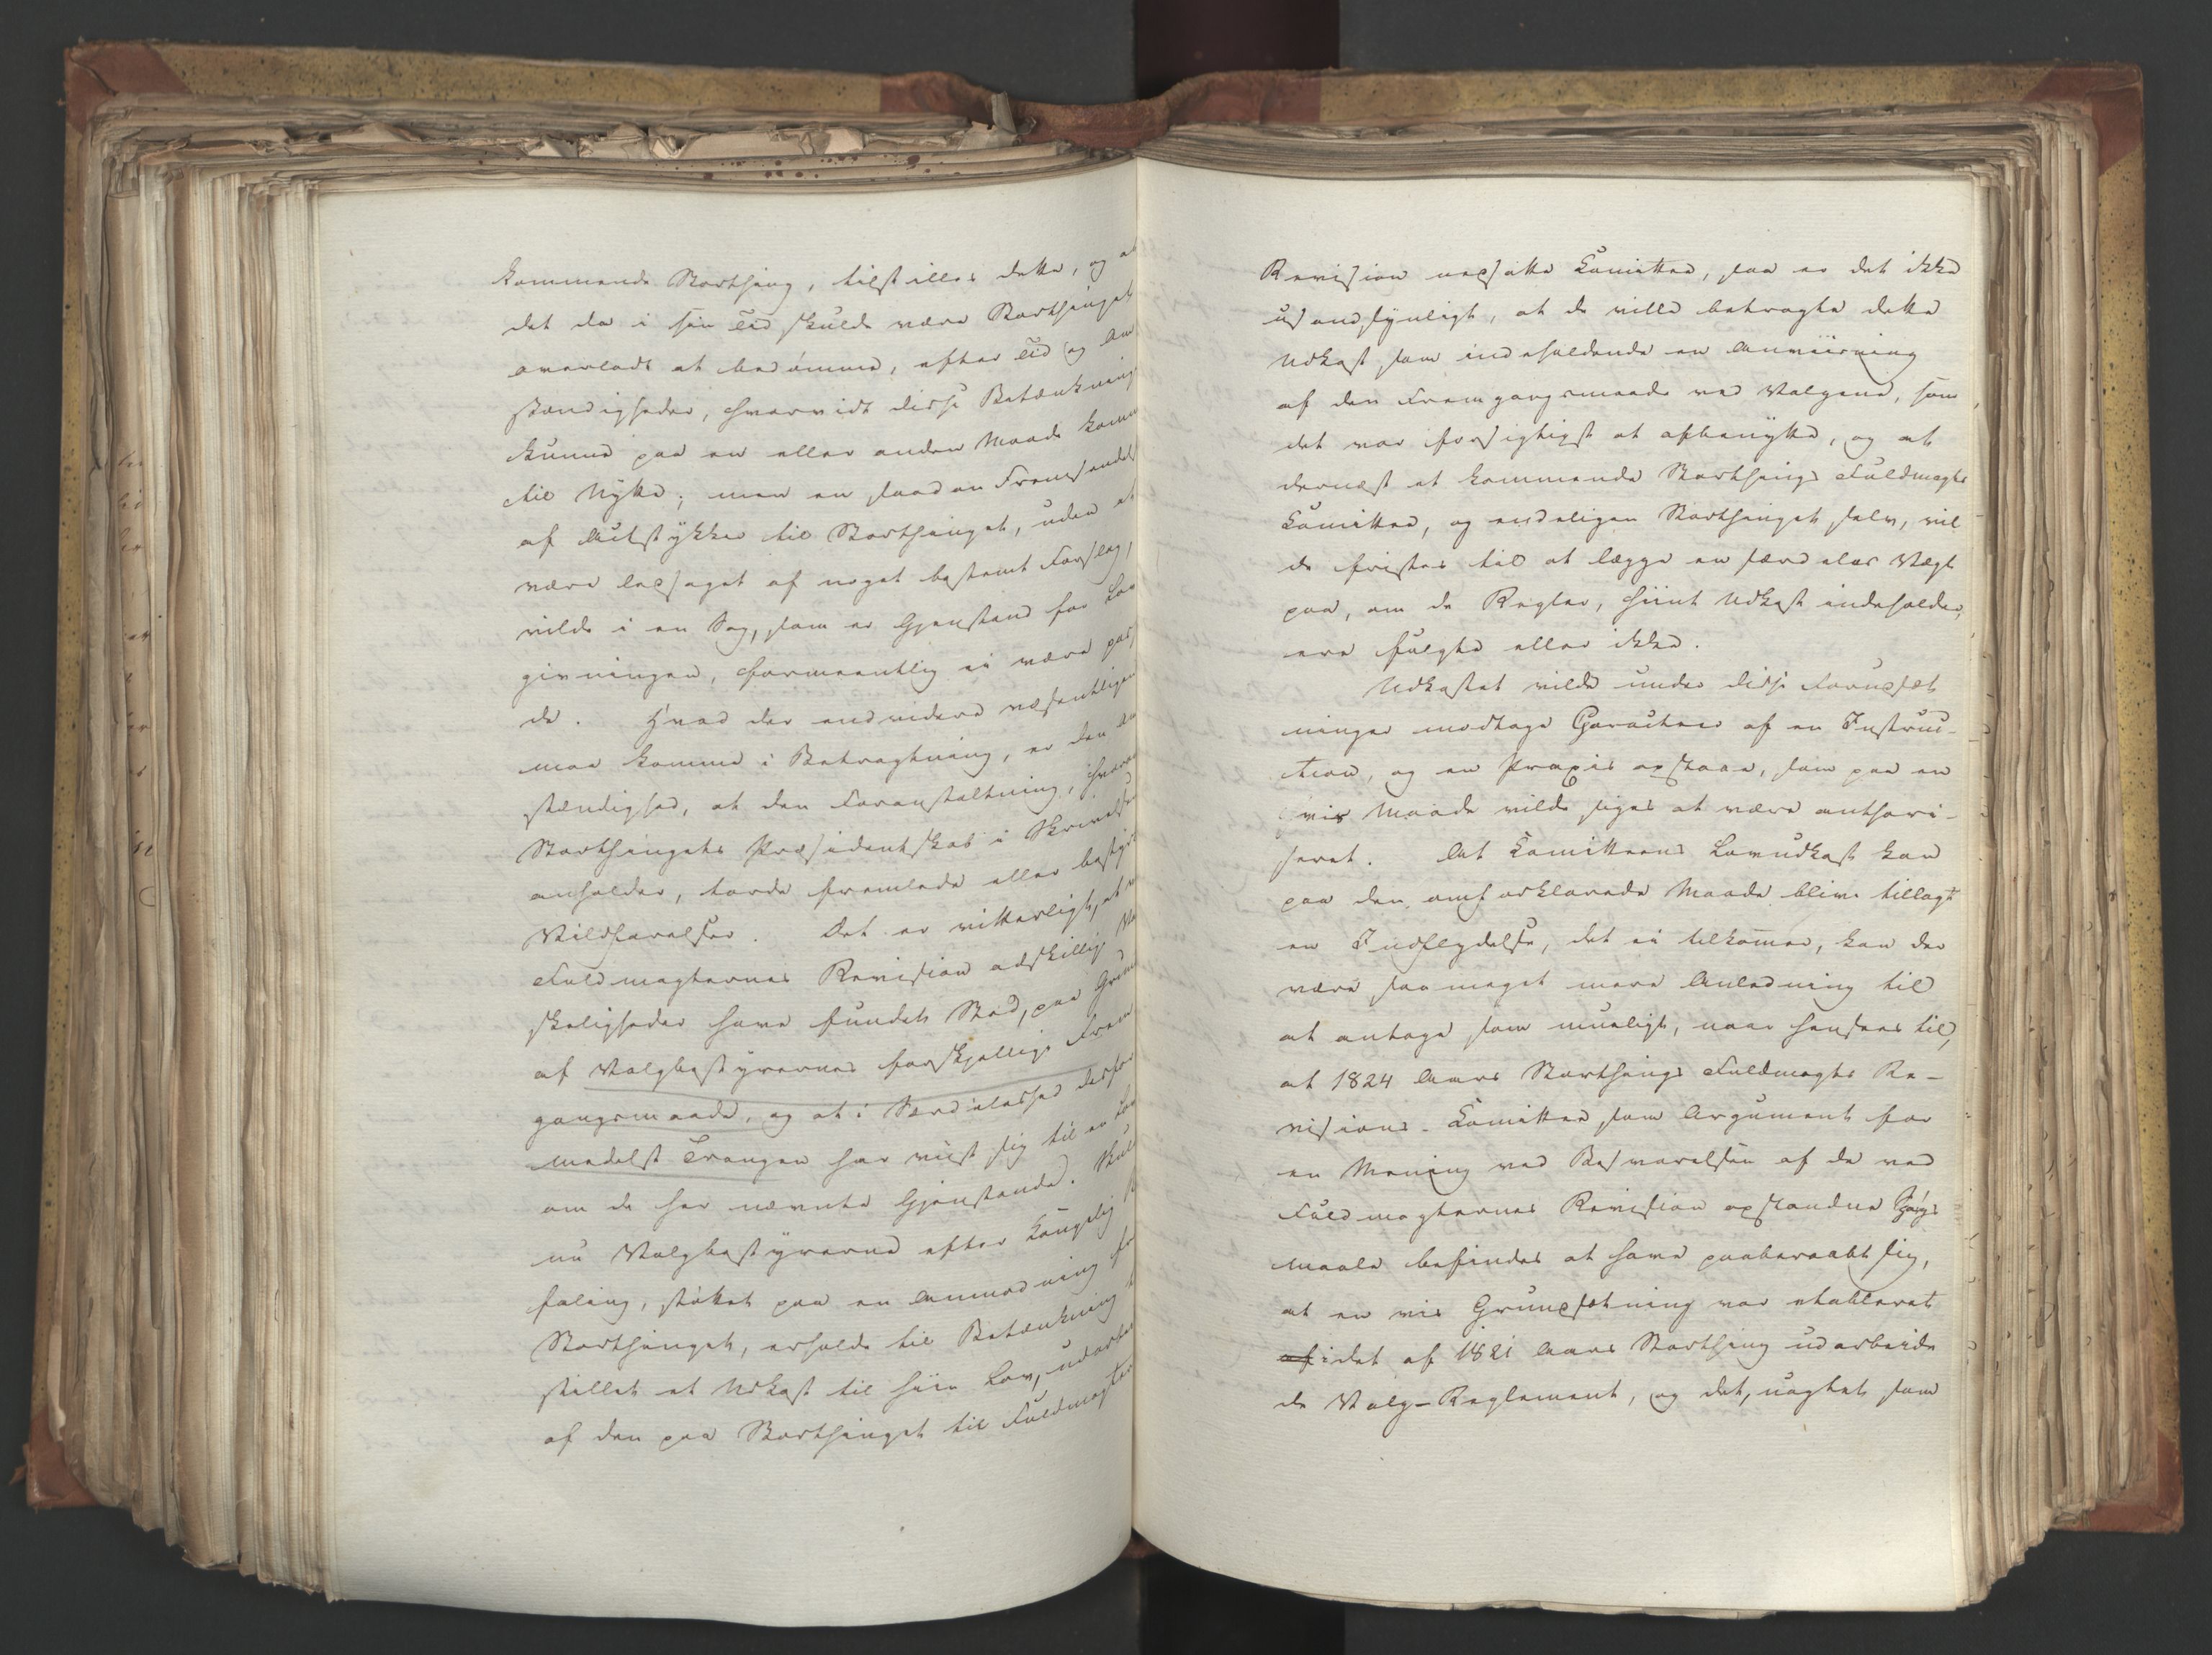 kommende Storthing, tilstilles dette, og at
det da i sin Tid skulde være Storthinget
overladt at bedømme, efter Tid og Om
stændigheder, hvorvidt disse Betænkning
kunne paa en eller anden Maade komme
til Nytte; men en saadan Fremsendels
af Actstykker til Storthinget, uden at
være ledsaget af noget bestemt Forslag,
vilde i en Sag, som er Gjenstand for Lov
givningen, formeentlig ei være pas
de. Hvad der endvidere væsentligen
maa komme i Betragtning, er den Om
stændighed, at den Foranstaltning, hvorom
Storthingets Præsidentskab i Skrivelse
anholder, torde fremlede eller bestyrke
Vildfarelser. Det er vitterligt, at ved
Fuldmagternes Revision adskillige Va
skeligheder have fundet Sted, paa Grund
af Valgbestyrernes forskjellige Frem
gangsmaade, og at i Særdeleshed derfor
medelst Trangen har viist sig til en Lov
om de her nævnte Gjenstande. Skul
nu Valgbestyrerne efter Kongelig Be
faling, støttet paa en Anmodning fra
Storthinget, erholde til Betænkning til
stillet et Udkast til hiin Lov, udarbei
af den paa Storthinget til Fuldmagter
Revision nedsatte Comittee, saa er det ikke
usandsynligt, at de ville betragte dette
Udkast som indeholdende en Anviisning
af den Fremgangsmaade ved Valgene, som
det var forsigtigst at afbenytte, og at
dernæst et kommende Storthings Fuldmagts
Comittee, og endeligen Storthinget selv, vil
de fristes til at lægge en særdeles Vægt
paa, om de Regler, hiint Udkast indeholder,
ere fulgte eller ikke.
Udkastet vilde under disse Forudsæt
ninger modtage Caracteer af en Instruc-
tion, og en Praxis opstaae, som paa en
vis Maade vilde siges at være authori-
seret. At Comitteens Lovudkast kan
paa den omforklarede Maade blive tillagt
en Indflydelse, det ei tilkommer, kan der
være saa meget mere Anledning til
at antage som mueligt, naar hensees til,
at 1824 Aars Storthings Fuldmagts Re-
visions-Comittee som Argument for
en Mening ved Besvarelsen af de ved
Fuldmagternes Revision opstandne Spørgs
maale befindes at have paaberaabt sig,
at en vis Grundsætning var etableret
af i det af 1821 Aars Storthing udarbeide
de Valg-Reglement, og det, uagtet som